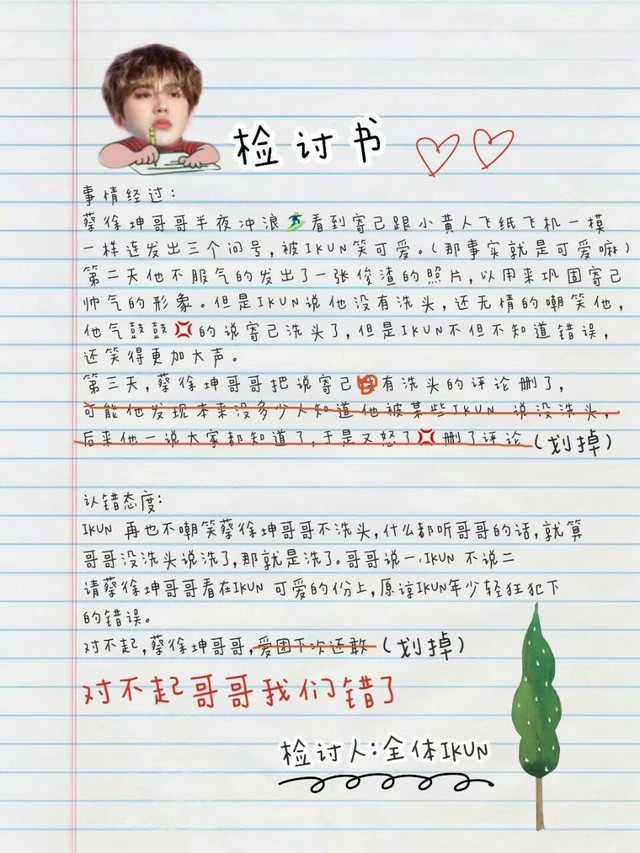 检讨书
事情经过:
蔡徐坤哥哥半夜冲浪🏄看到寄己跟小黄人飞纸飞机一模
一样连发出三个问号,被IKUN笑可爱。(那事实就是可爱嘛)
第二天他不服气的发出了一张俊渣的照片,以用来巩固寄己
帅气的形象。但是IKUN说他没有洗头,还无情的嘲笑他,
他气鼓鼓💢的说寄己洗头了,但是IKUN不但不知道错误,
还笑得更加大声。
第三天,蔡徐坤哥哥把说寄己有洗头的评论删了,
可能他发现本来没多少人知道他被某些IKUN 说没洗头,
后来他一说大家都知道了,于是又怒了💢删了评论(划掉)
认错态度:
IKUN 再也不嘲笑蔡徐坤哥哥不洗头,什么都听哥哥的话,就算
哥哥没洗头说洗了,那就是洗了。哥哥说一,IKUN 不说二
请蔡徐坤哥哥看在IKUN 可爱的份上,原谅IKUN年少轻狂犯下
的错误。
对不起,蔡徐坤哥哥,爱困下次还敢(划掉)
对不起哥哥我们错了
检讨人:全体IKUN